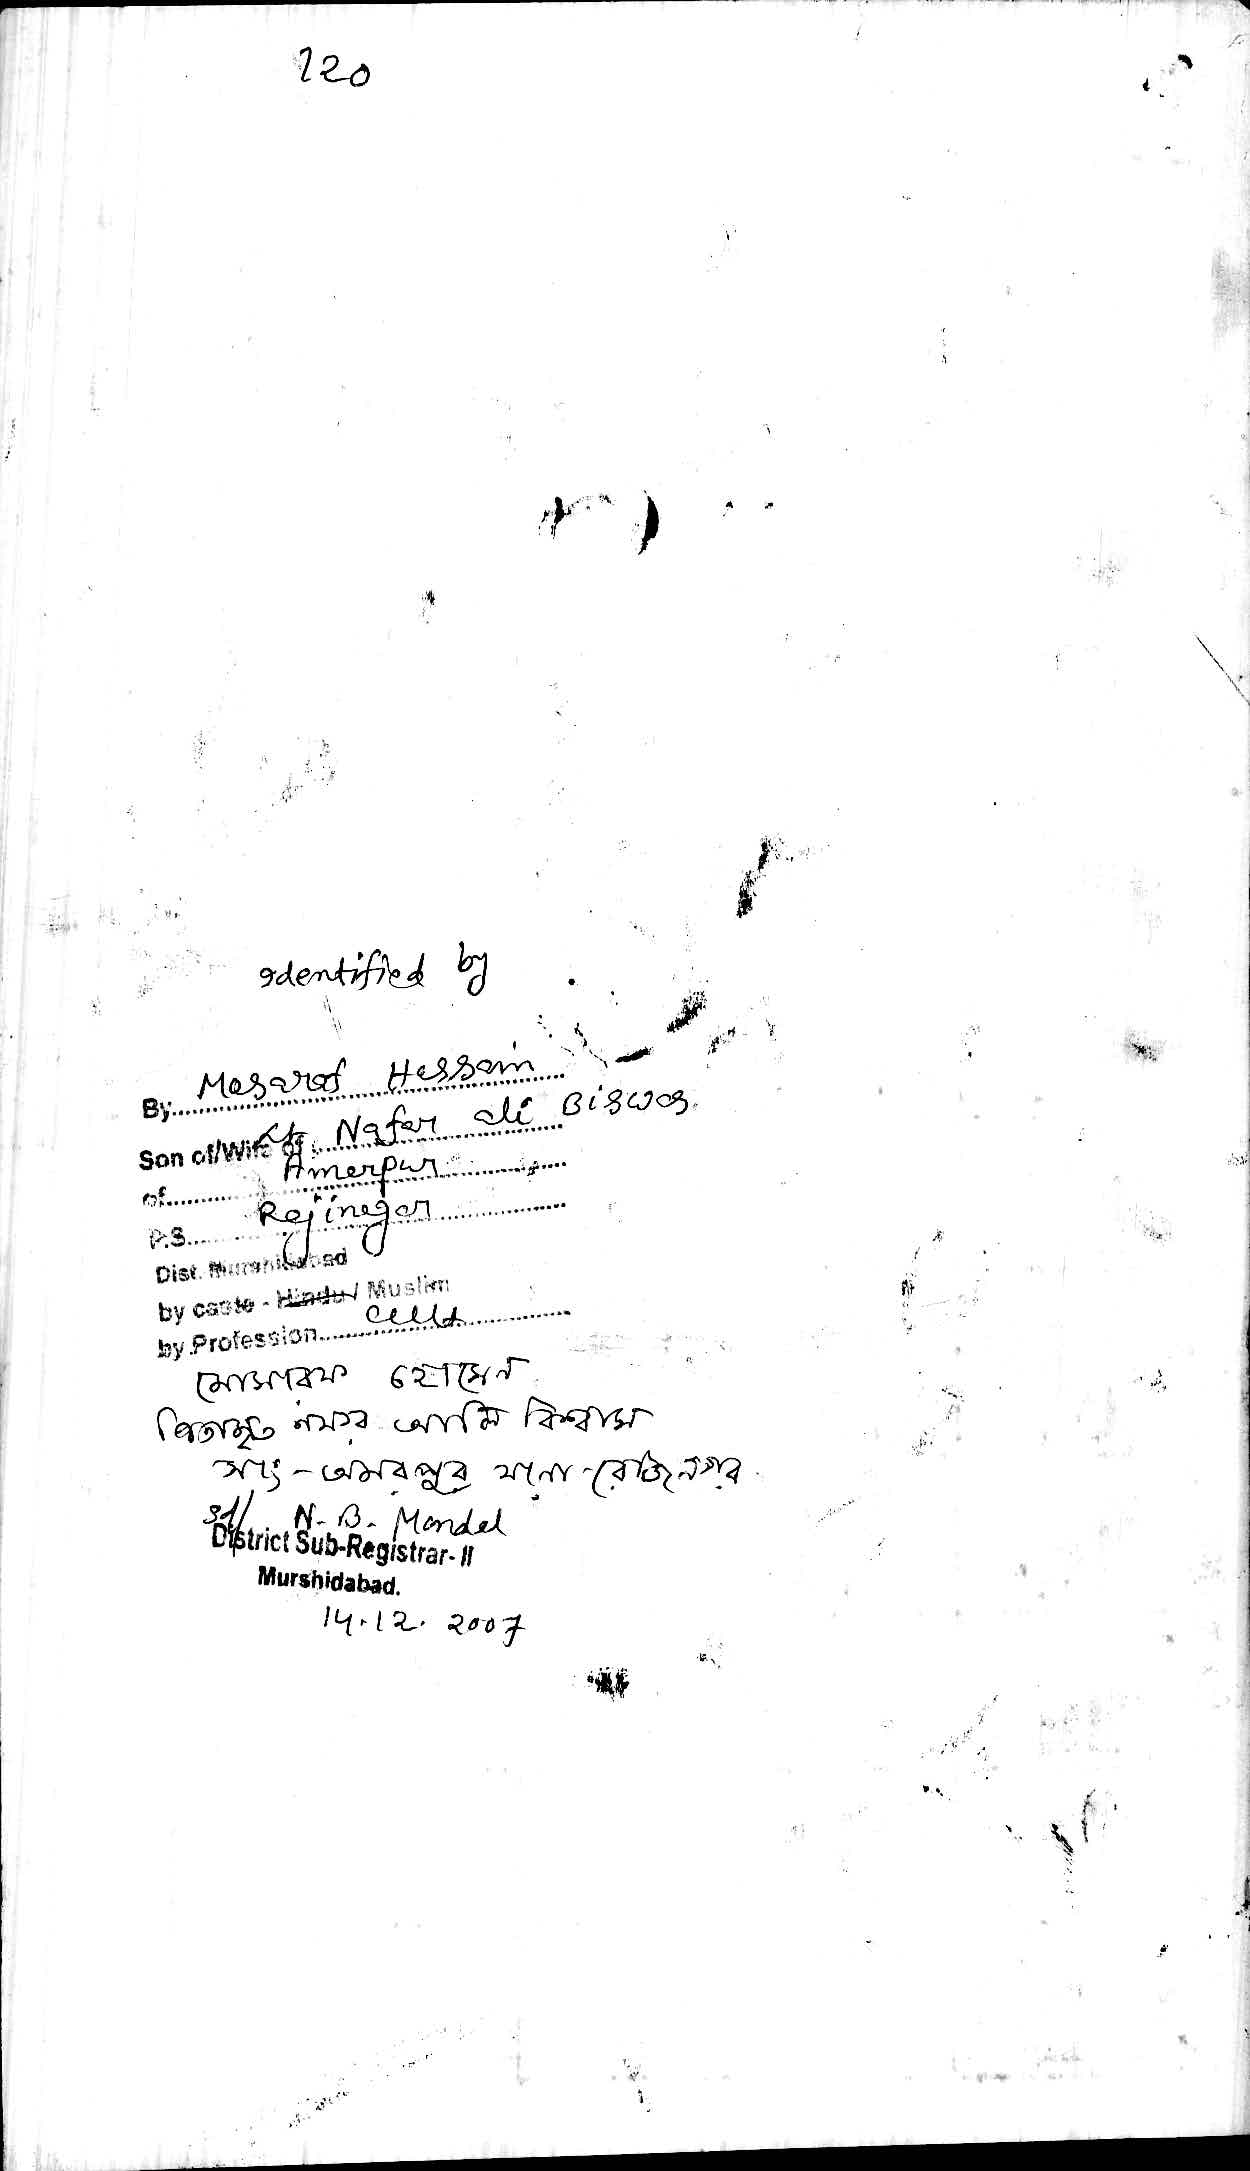 120
Identified by
By Mosarof Hossain
Son of/Wife of Lt. Nafar Ali Biswas
of Amarpur
P.S. Rejinagar
Dist. Murshidabad
by caste - Hindu / Muslim
by Profession Cult
মোসারফ হোসেন
পিতামৃত নফর আলি বিশ্বাস
সাং - অমরপুর থানা - রেজিনগর
Sd/ N. B. Mondal
District Sub-Registrar-II
Murshidabad.
14.12.2007